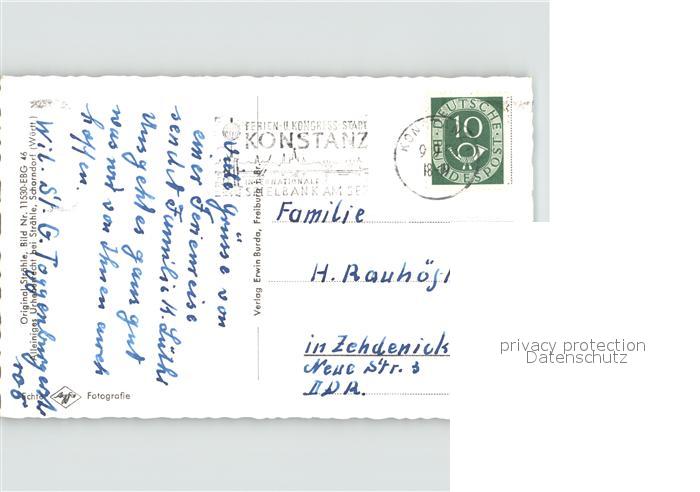 Viele Grüsse von
einer Ferienreise
sendet Familie H. Lüthi
Uns geht es ganz gut
was wir von Ihnen auch
hoffen.
Wil. St. G. Toggenburgerstr
100
Original Strähle, Bild Nr. 11530-EBG 46
Alleiniges Urheberrecht bei Strähle, Schorndorf (Württ.)
Echte Agfa Fotografie
Verlag Erwin Burda, Freiburg
FERIEN-U. KONGRESS-STADT
KONSTANZ
INTERNATIONALE
SPIELBANK AM SEE
KON
18
DEUTSCHE
10
BUNDESPOST
Familie
H. Rauhög
in Zehdenick
Neue Str. 3
DDR.
privacy protection
Datenschutz